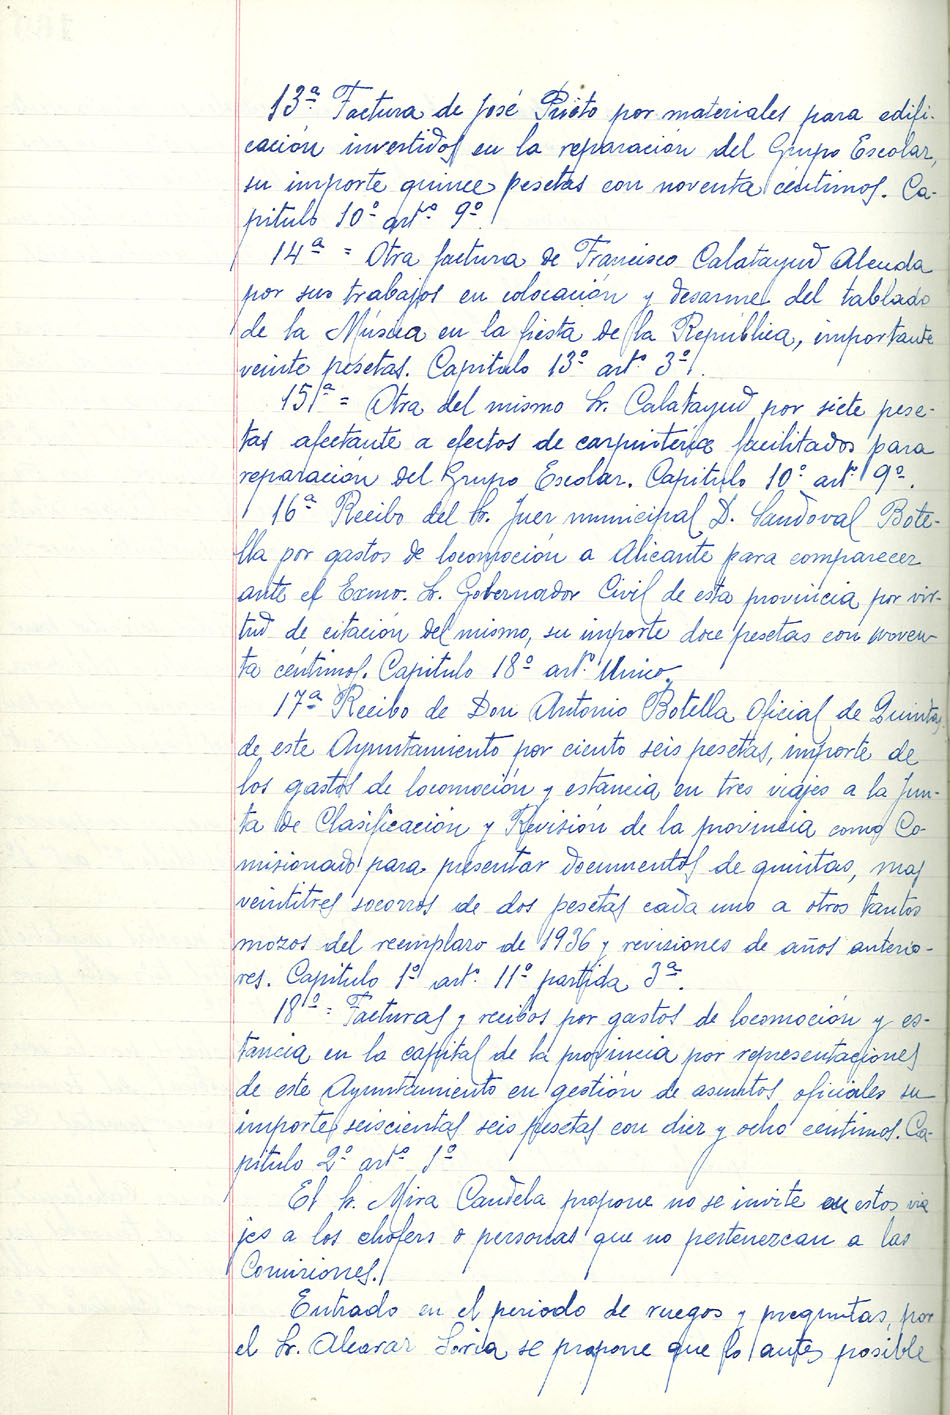 13ª Factura de José Prieto por materiales para edifi-
cación invertidos en la reparación del Grupo Escolar,
su importe quince pesetas con noventa céntimos. Ca-
pitulo 10º artº 9º
14ª = Otra factura de Francisco Calatayud Alenda
por sus trabajos en colocación y desarme del tablado
de la Música en la fiesta de la República, importante
veinte pesetas. Capitulo 13º artº 3º.
15ª = Otra del mismo Sr. Calatayud por siete pese-
tas afectante a efectos de carpinteria facilitados para
reparación del Grupo Escolar. Capitulo 10º artº 9º.
16ª Recibo del Sr. Juez municipal D. Sandoval Bote-
lla por gastos de locomoción a Alicante para comparecer
ante el Exmo. Sr. Gobernador Civil de esta provincia por vir-
tud de citación del mismo, su importe doce pesetas con noven-
ta céntimos. Capitulo 18º artº Unico.
17ª Recibo de Don Antonio Botella Oficial de Quintas
de este Ayuntamiento por ciento seis pesetas, importe de
los gastos de locomoción y estancia en tres viajes a la Jun-
ta de Clasificación y Revisión de la provincia como Co-
misionado para presentar documentos de quintas, mas
veintitres socorros de dos pesetas cada uno a otros tantos
mozos del reemplazo de 1936 y revisiones de años anterio-
res. Capitulo 1º artº 11º partida 3ª.
18ª = Facturas y recibos por gastos de locomoción y es-
tancia en la capital de la provincia por representaciones
de este Ayuntamiento en gestión de asuntos oficiales su
importe seiscientas seis pesetas con diez y ocho céntimos. Ca-
pitulo 2º artº 1º
El Sr. Mira Candela propone no se invite en estos via
jes a los chofers o personas que no pertenezcan a las
Comisiones.
Entrado en el periodo de ruegos y preguntas, por
el Sr. Alcaraz Soria se propone que lo antes posible